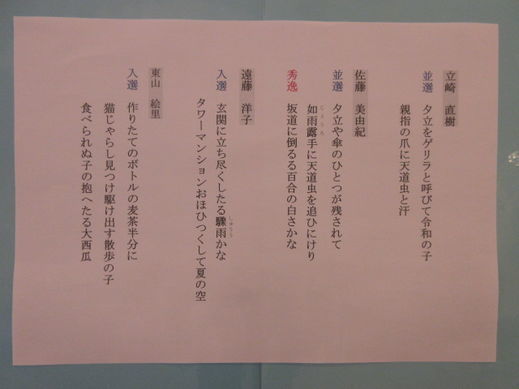 立崎　直樹
並選　夕立をゲリラと呼びて令和の子
親指の爪に天道虫と汗
佐藤　美由紀
並選　夕立や傘のひとつが残されて
如雨露手に天道虫を追ひにけり
秀逸　坂道に倒るる百合の白さかな
遠藤　洋子
入選　玄関に立ち尽くしたる驟雨かな
タワーマンションおほひつくして夏の空
東山　絵里
入選　作りたてのボトルの麦茶半分に
猫じゃらし見つけ駆け出す散歩の子
食べられぬ子の抱へたる大西瓜